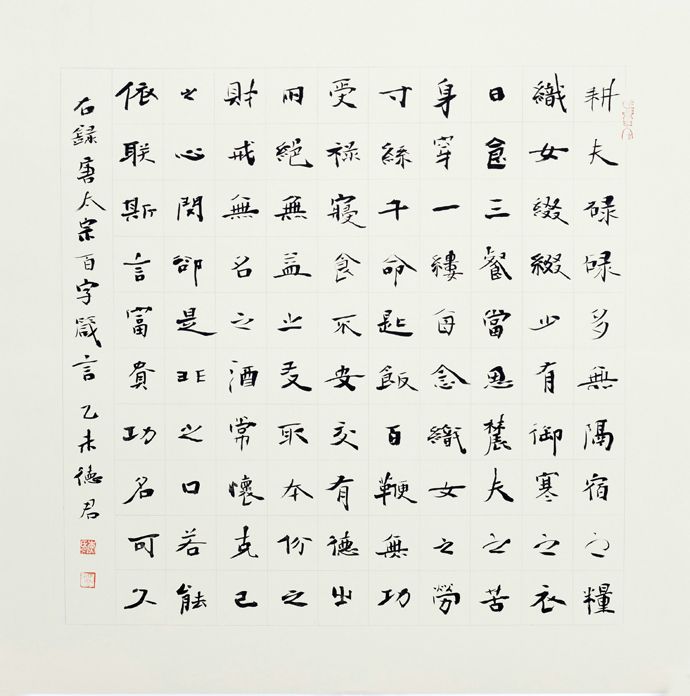 耕夫碌碌多無隔宿之糧
織女綴綴少有御寒之衣
日食三餐當思農夫之苦
身穿一縷每念織女之勞
寸絲千命匙飯百鞭無功
受祿寢食不安交有德之
朋絕無益之友取本份之
財戒無名之酒常懷克己
之心閉卻是非之口若能
依朕斯言富貴功名可久
右録唐太宗百字箴言 乙未德君